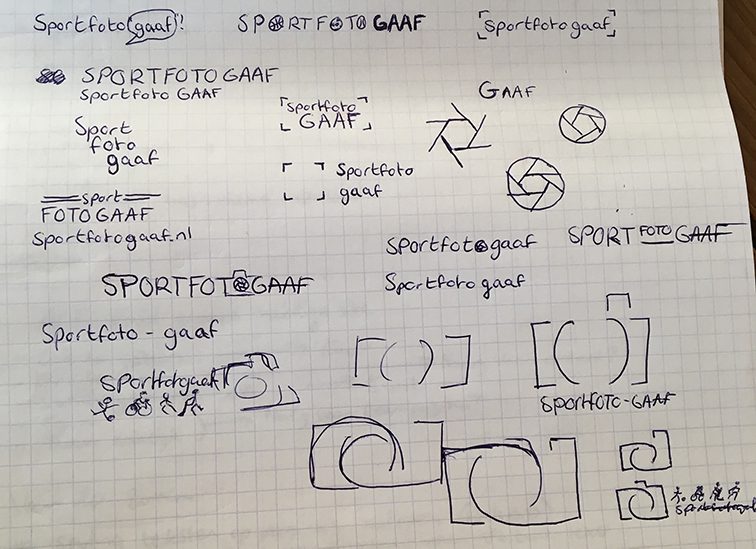 Sportfoto gaaf!
SPORTFOTO GAAF
Sportfotogaaf
SPORTFOTO GAAF
Sportfoto GAAF
GAAF
Sportfoto
GAAF
Sport
foto
gaaf
Sportfoto
gaaf
sport
FOTOGAAF
Sportfotogaaf.nl
SPORT FOTO GAAF
Sportfotogaaf
SPORTFOTOGAAF
Sportfotogaaf
Sportfoto - gaaf
SPORTFOTO-GAAF